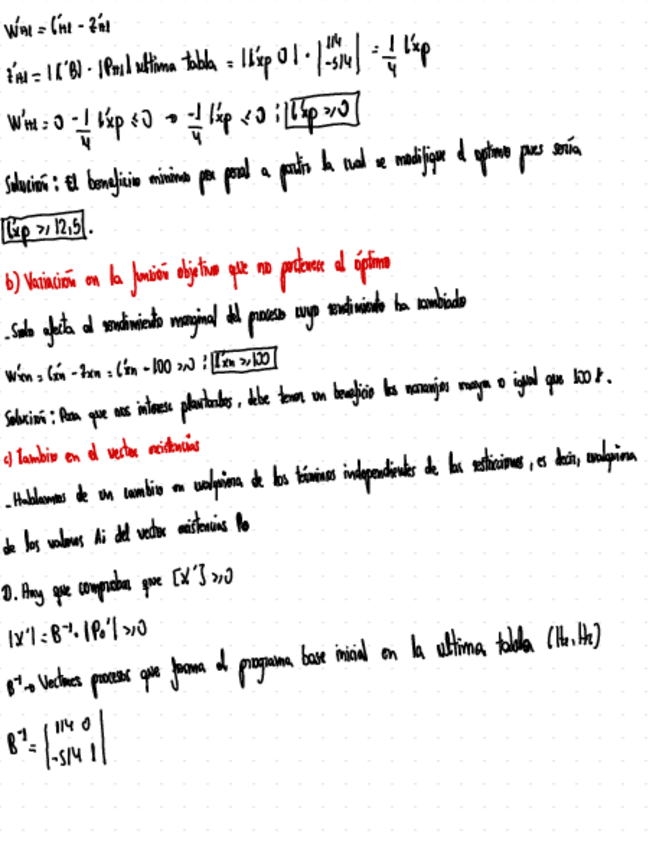 W'H1 = C'H1 - Z'H1
Z'H1 = |C'B| · |PH1| ultima tabla = |C'xp 0| · |1/4 -5/4| = 1/4 C'xp
W'H1 = 0 - 1/4 C'xp ≤ 0 → -1/4 C'xp ≤ 0 ; C'xp ≥ 0
Solución: El beneficio mínimo por peral a partir la cual se modifique el optimo pues sería
C'xp ≥ 12,5.
b) Variación en la función objetivo que no pertenece al óptimo
- Solo afecta al rendimiento marginal del proceso cuyo rendimiento ha cambiado
W'xn = C'xn - Zxn = C'xn - 100 ≥ 0 ; C'xn ≥ 100
Solución: Para que nos interese plantarlos, debe tener un beneficio los naranjos mayor o igual que 100 €.
c) Cambio en el vector existencias
- Hablamos de un cambio en cualquiera de los términos independientes de las restricciones, es decir, cualquiera
de los valores Ai del vector existencias Po
D. Hay que comprobar que [X'] ≥ 0
|X'| = B⁻¹ · |Po'| ≥ 0
B⁻¹ → Vectores procesos que forma el programa base inicial en la ultima tabla (H1, H2)
B⁻¹ = |1/4 0
-5/4 1|